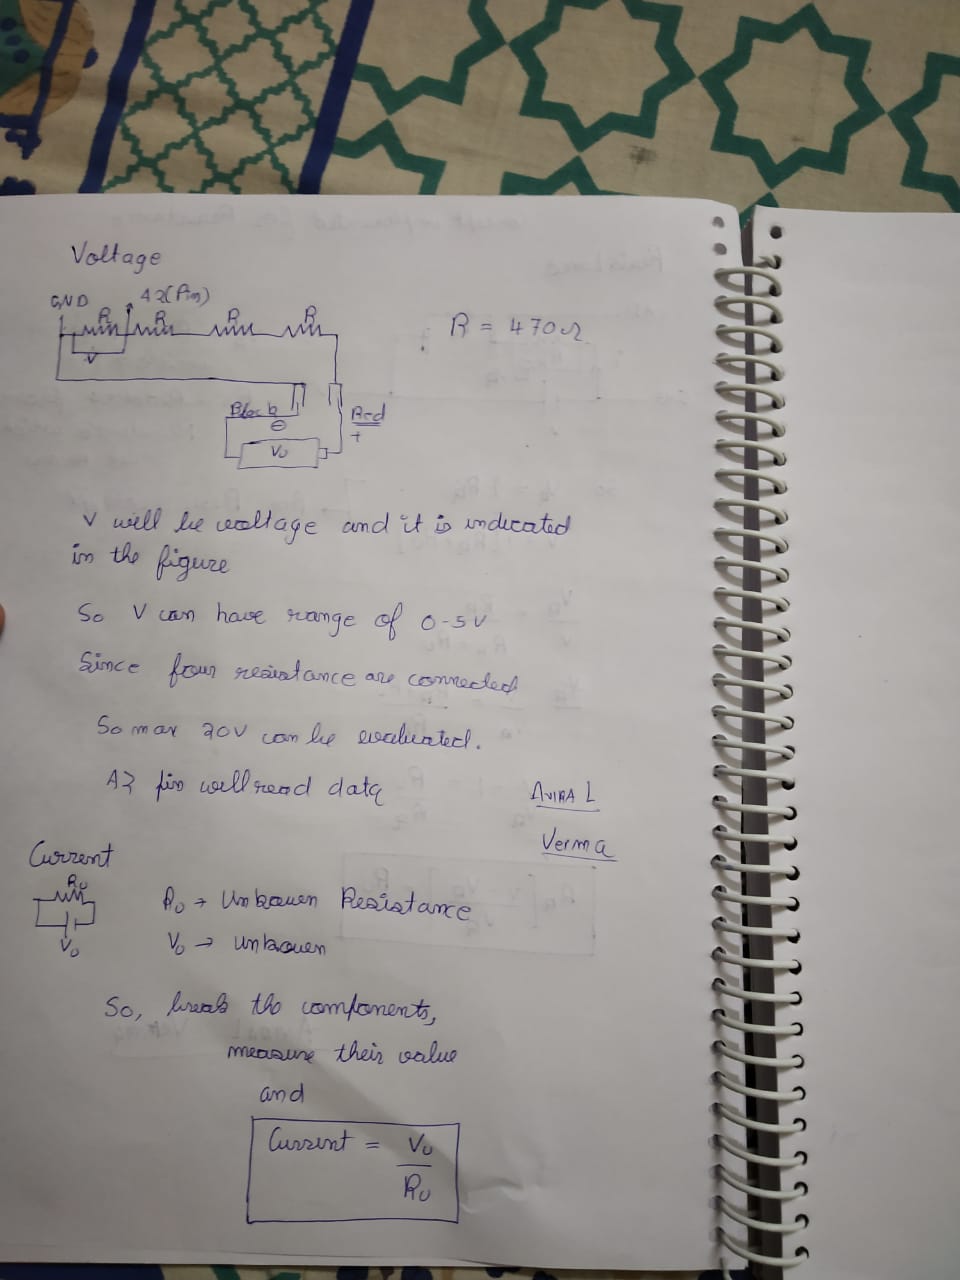 Voltage
GND A2(Pin)
R R R R
V
R = 470Ω
Black
⊖
Red
+
V₀
V will be voltage and it is indicated
in the figure
So V can have range of 0-5V
Since four resistance are connected
So max 20V can be evaluated.
A2 pin will read data
AVIRAL
Verma
Current
R₀
V₀
R₀ → Unknown Resistance
V₀ → Unknown
So, break the components,
measure their value
and
Current = V₀
R₀